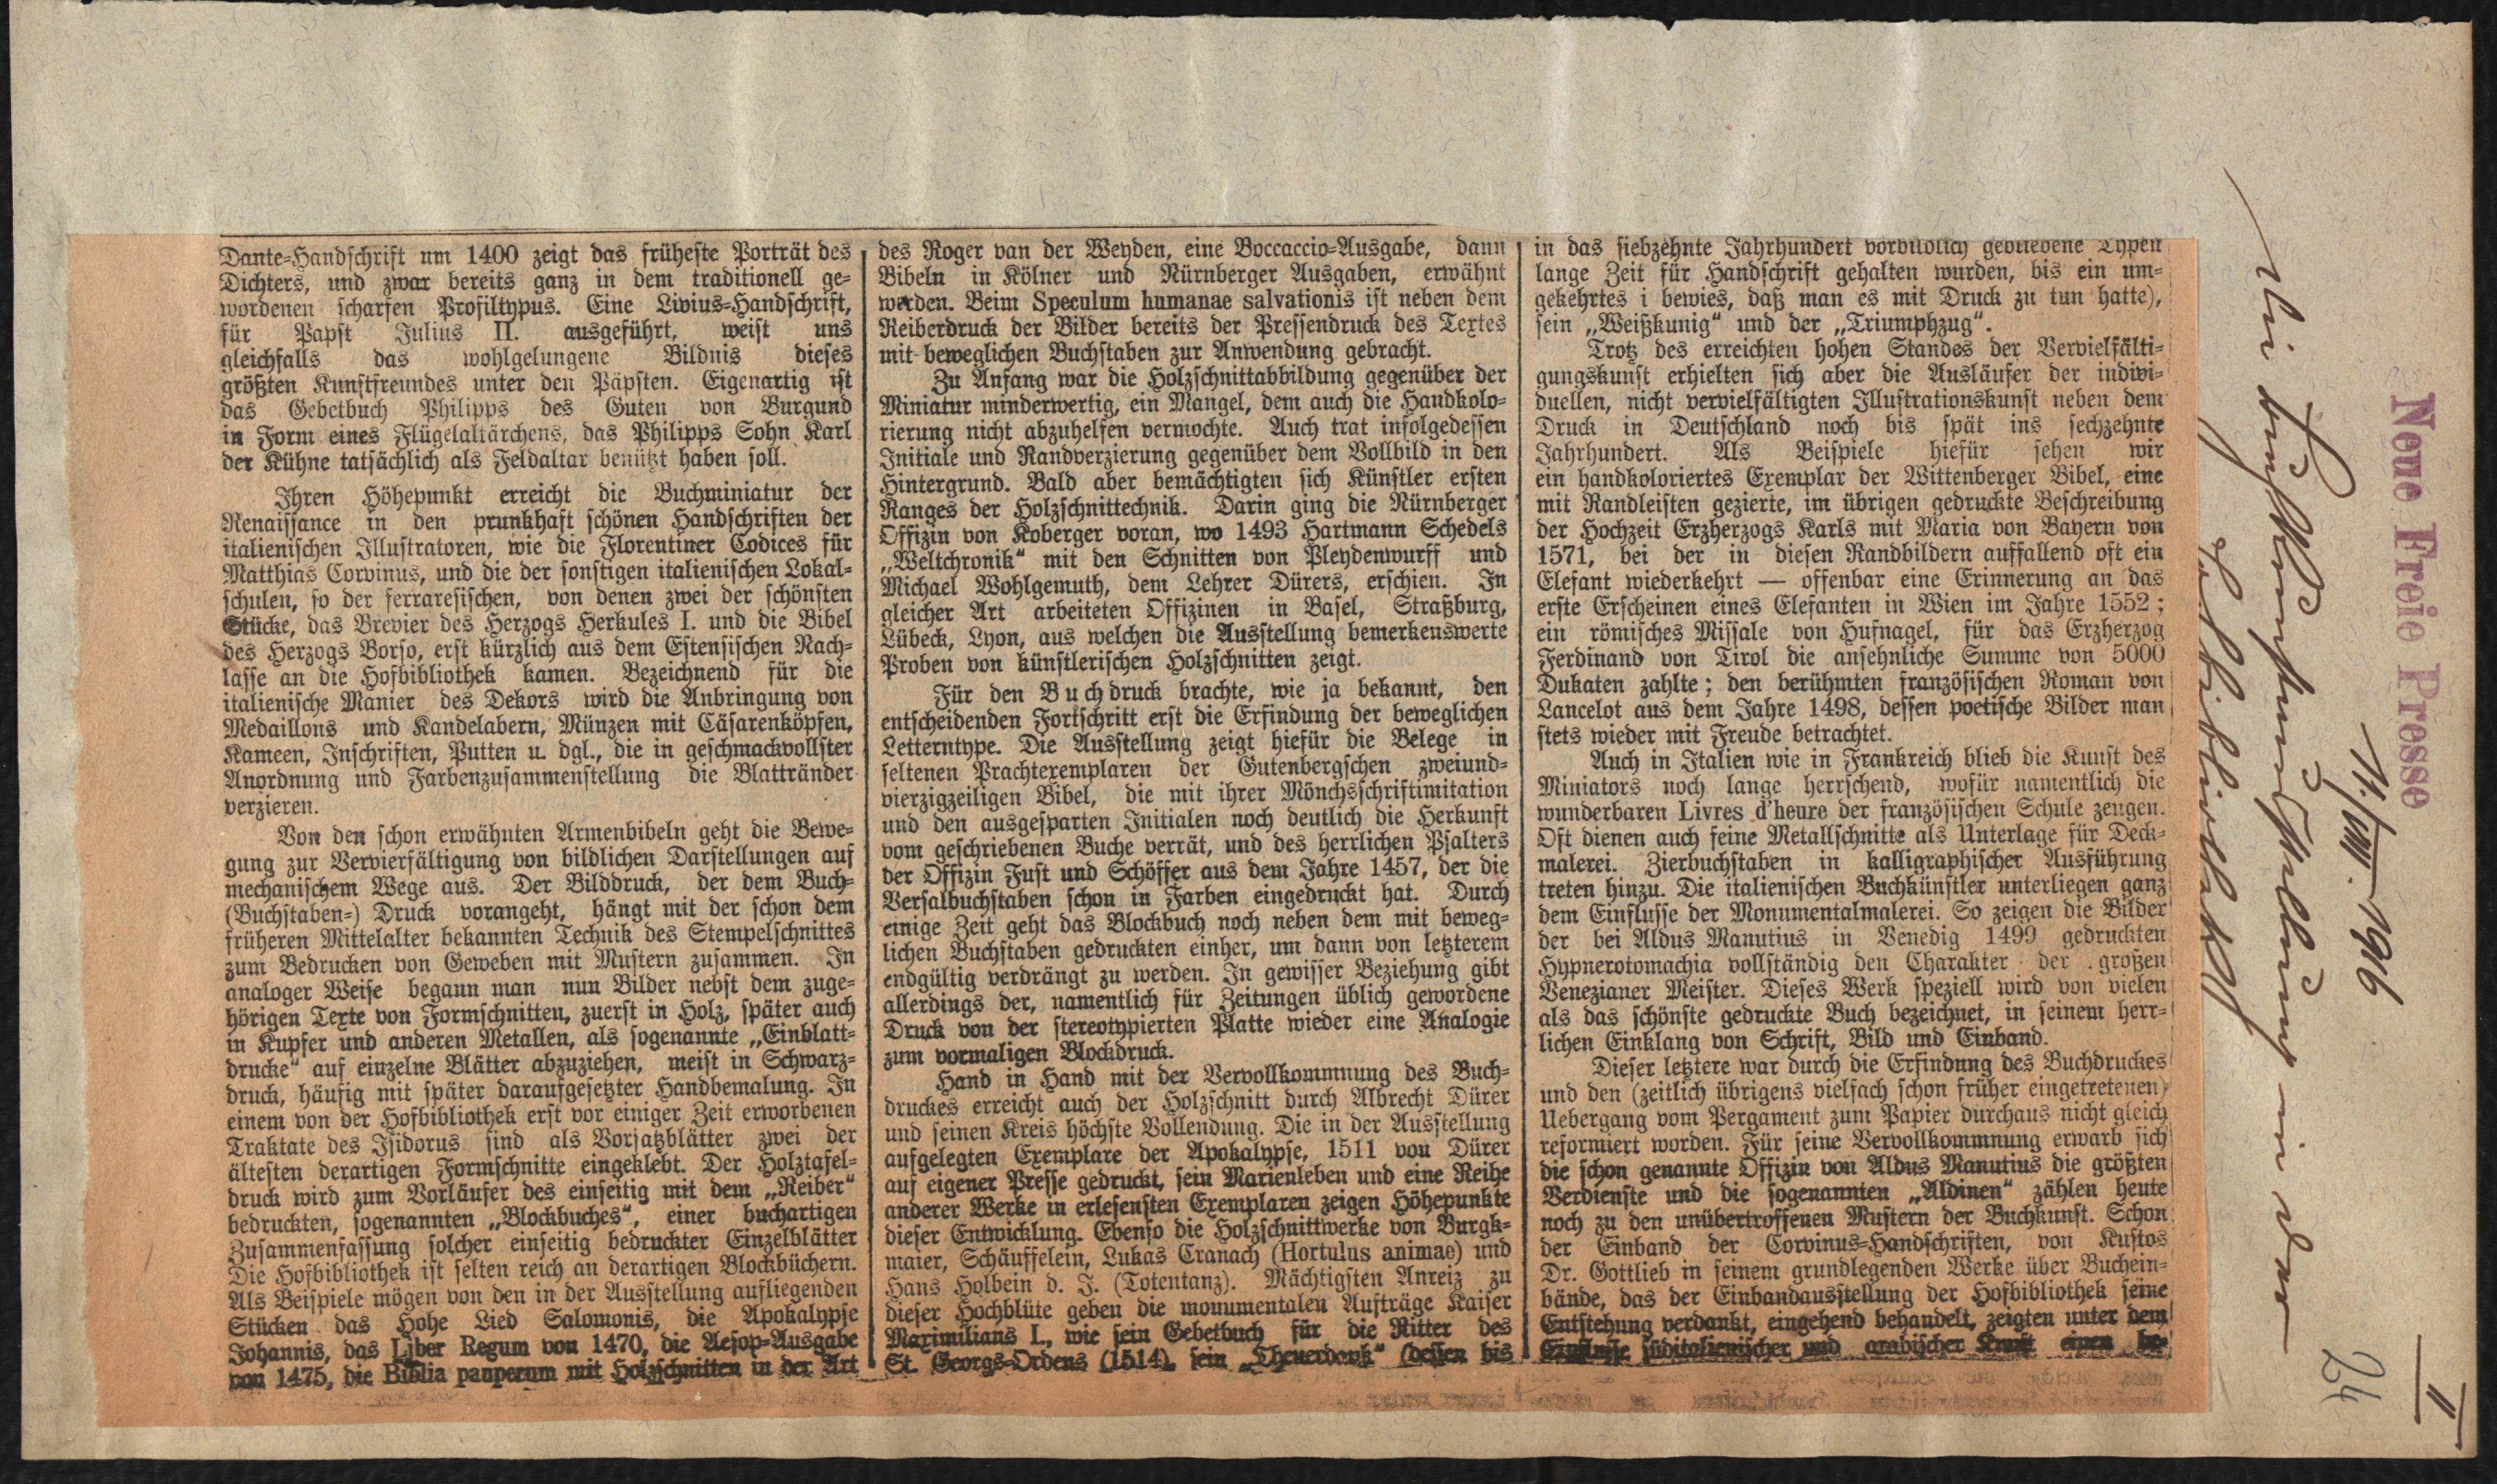 Dante-Handschrift um 1400 zeigt das früheste Porträt des
Dichters, und zwar bereits ganz in dem traditionell ge-
wordenen scharfen Profiltypus. Eine Livius-Handschrift,
für Papst Julius II. ausgeführt, weist uns
gleichfalls das wohlgelungene Bildnis dieses
größten Kunstfreundes unter den Päpsten. Eigenartig ist
das Gebetbuch Philipps des Guten von Burgund
in Form eines Flügelaltärchens, das Philipps Sohn Karl
der Kühne tatsächlich als Feldaltar benützt haben soll.
Ihren Höhepunkt erreicht die Buchminiatur der
Renaissance in den prunkhaft schönen Handschriften der
italienischen Illustratoren, wie die Florentiner Codices für
Matthias Corvinus, und die der sonstigen italienischen Lokal-
schulen, so der ferraresischen, von denen zwei der schönsten
Stücke, das Brevier des Herzogs Herkules I. und die Bibel
des Herzogs Borso, erst kürzlich aus dem Estensischen Nach-
lasse an die Hofbibliothek kamen. Bezeichnend für die
italienische Manier des Dekors wird die Anbringung von
Medaillons und Kandelabern, Münzen mit Cäsarenköpfen,
Kameen, Inschriften, Putten u. dgl., die in geschmackvollster
Anordnung und Farbenzusammenstellung die Blattränder
verzieren.
Von den schon erwähnten Armenbibeln geht die Bewe-
gung zur Vervierfältigung von bildlichen Darstellungen auf
mechanischem Wege aus. Der Bilddruck, der dem Buch-
(Buchstaben-) Druck vorangeht, hängt mit der schon dem
früheren Mittelalter bekannten Technik des Stempelschnittes
zum Bedrucken von Geweben mit Mustern zusammen. In
analoger Weise begann man nun Bilder nebst dem zuge-
hörigen Texte von Formschnitten, zuerst in Holz, später auch
in Kupfer und anderen Metallen, als sogenannte „Einblatt-
drucke“ auf einzelne Blätter abzuziehen, meist in Schwarz-
druck, häufig mit später daraufgesetzter Handbemalung. In
einem von der Hofbibliothek erst vor einiger Zeit erworbenen
Traktate des Isidorus sind als Vorsatzblätter zwei der
ältesten derartigen Formschnitte eingeklebt. Der Holztafel-
druck wird zum Vorläufer des einseitig mit dem „Reiber“
bedruckten, sogenannten „Blockbuches“, einer buchartigen
Zusammenfassung solcher einseitig bedruckter Einzelblätter
Die Hofbibliothek ist selten reich an derartigen Blockbüchern.
Als Beispiele mögen von den in der Ausstellung aufliegenden
Stücken das Hohe Lied Salomonis, die Apokalypse
Johannis, das Liber Regum von 1470, die Aesop-Ausgabe
von 1475, die Biblia pauperum mit Holzschnitten in der Art
des Roger van der Weyden, eine Boccaccio-Ausgabe, dann
Bibeln in Kölner und Nürnberger Ausgaben, erwähnt
werden. Beim Speculum humanae salvationis ist neben dem
Reiberdruck der Bilder bereits der Pressendruck des Textes
mit beweglichen Buchstaben zur Anwendung gebracht.
Zu Anfang war die Holzschnittabbildung gegenüber der
Miniatur minderwertig, ein Mangel, dem auch die Handkolo-
rierung nicht abzuhelfen vermochte. Auch trat infolgedessen
Initiale und Randverzierung gegenüber dem Vollbild in den
Hintergrund. Bald aber bemächtigten sich Künstler ersten
Ranges der Holzschnittechnik. Darin ging die Nürnberger
Offizin von Koberger voran, wo 1493 Hartmann Schedels
„Weltchronik“ mit den Schnitten von Pleydenwurff und
Michael Wohlgemuth, dem Lehrer Dürers, erschien. In
gleicher Art arbeiteten Offizinen in Basel, Straßburg,
Lübeck, Lyon, aus welchen die Ausstellung bemerkenswerte
Proben von künstlerischen Holzschnitten zeigt.
Für den Buchdruck brachte, wie ja bekannt, den
entscheidenden Fortschritt erst die Erfindung der beweglichen
Letterntype. Die Ausstellung zeigt hiefür die Belege in
seltenen Prachtexemplaren der Gutenbergschen zweiund-
vierzigzeiligen Bibel, die mit ihrer Mönchsschriftimitation
und den ausgesparten Initialen noch deutlich die Herkunft
vom geschriebenen Buche verrät, und des herrlichen Psalters
der Offizin Fust und Schöffer aus dem Jahre 1457, der die
Versalbuchstaben schon in Farben eingedruckt hat. Durch
einige Zeit geht das Blockbuch noch neben dem mit beweg-
lichen Buchstaben gedruckten einher, um dann von letzterem
endgültig verdrängt zu werden. In gewisser Beziehung gibt
allerdings der, namentlich für Zeitungen üblich gewordene
Druck von der stereotypierten Platte wieder eine Analogie
zum vormaligen Blockdruck.
Hand in Hand mit der Vervollkommnung des Buch-
druckes erreicht auch der Holzschnitt durch Albrecht Dürer
und seinen Kreis höchste Vollendung. Die in der Ausstellung
aufgelegten Exemplare der Apokalypse, 1511 von Dürer
auf eigener Presse gedruckt, sein Marienleben und eine Reihe
anderer Werke in erlesensten Exemplaren zeigen Höhepunkte
dieser Entwicklung. Ebenso die Holzschnittwerke von Burgk-
maier, Schäuffelein, Lukas Cranach (Hortulus animae) und
Hans Holbein d. J. (Totentanz). Mächtigsten Anreiz zu
dieser Hochblüte geben die monumentalen Aufträge Kaiser
Maximilians I., wie sein Gebetbuch für die Ritter des
St. Georgs-Ordens (1514), sein „Theuerdank“ (dessen bis
in das siebzehnte Jahrhundert vorbildlich gebliebene Typen
lange Zeit für Handschrift gehalten wurden, bis ein um-
gekehrtes i bewies, daß man es mit Druck zu tun hatte),
sein „Weißkunig“ und der „Triumphzug“.
Trotz des erreichten hohen Standes der Vervielfälti-
gungskunst erhielten sich aber die Ausläufer der indivi-
duellen, nicht vervielfältigten Illustrationskunst neben dem
Druck in Deutschland noch bis spät ins sechzehnte
Jahrhundert. Als Beispiele hiefür sehen wir
ein handkoloriertes Exemplar der Wittenberger Bibel, eine
mit Randleisten gezierte, im übrigen gedruckte Beschreibung
der Hochzeit Erzherzogs Karls mit Maria von Bayern von
1571, bei der in diesen Randbildern auffallend oft ein
Elefant wiederkehrt — offenbar eine Erinnerung an das
erste Erscheinen eines Elefanten in Wien im Jahre 1552;
ein römisches Missale von Hufnagel, für das Erzherzog
Ferdinand von Tirol die ansehnliche Summe von 5000
Dukaten zahlte; den berühmten französischen Roman von
Lancelot aus dem Jahre 1498, dessen poetische Bilder man
stets wieder mit Freude betrachtet.
Auch in Italien wie in Frankreich blieb die Kunst des
Miniators noch lange herrschend, wofür namentlich die
wunderbaren Livres d'heure der französischen Schule zeugen.
Oft dienen auch feine Metallschnitte als Unterlage für Deck-
malerei. Zierbuchstaben in kalligraphischer Ausführung
treten hinzu. Die italienischen Buchkünstler unterliegen ganz
dem Einflusse der Monumentalmalerei. So zeigen die Bilder
der bei Aldus Manutius in Venedig 1499 gedruckten
Hypnerotomachia vollständig den Charakter der großen
Venezianer Meister. Dieses Werk speziell wird von vielen
als das schönste gedruckte Buch bezeichnet, in seinem herr-
lichen Einklang von Schrift, Bild und Einband.
Dieser letztere war durch die Erfindung des Buchdruckes
und den (zeitlich übrigens vielfach schon früher eingetretenen)
Uebergang vom Pergament zum Papier durchaus nicht gleich
reformiert worden. Für seine Vervollkommnung erwarb sich
die schon genannte Offizin von Aldus Manutius die größten
Verdienste und die sogenannten „Aldinen“ zählen heute
noch zu den unübertroffenen Mustern der Buchkunst. Schon
der Einband der Corvinus-Handschriften, von Kustos
Dr. Gottlieb in seinem grundlegenden Werke über Buchein-
bände, das der Einbandausstellung der Hofbibliothek seine
Entstehung verdankt, eingehend behandelt, zeigten unter dem
Einflusse süditalienischer und arabischer Kunst einen be-
Neue Freie Presse
11./VIII. 1916
Die Buchkunstausstellung in der
Hofbibliothek
II
24